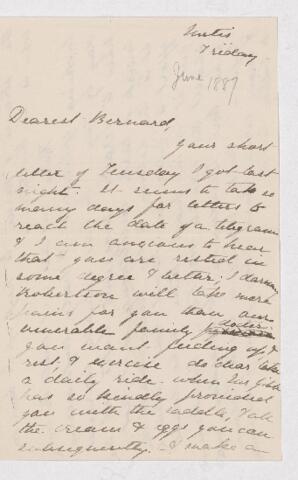 Friday
June 1887
Dearest Bernard,
your short
letter of Tuesday I got last
night. It seems to take so
many days for letters to
reach the date of a telegram
& I am anxious to hear
that you are rested in
some degree & better. I daresay
Robertson will take more
pains for you than our
venerable family doctor.
you want feeding up, &
rest, & exercise do dear take
a daily ride. when
has so kindly provided
you with the saddle, & all
the cream & eggs you can
subsequently. I make a